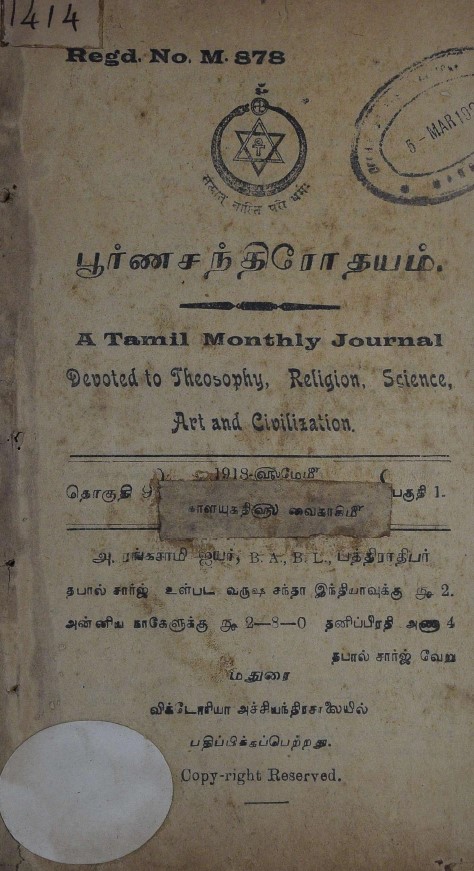 1414
Regd. No. M. 878
பூர்ணசந்திரோதயம்.
A Tamil Monthly Journal
Devoted to Theosophy, Religion, Science,
Art and Civilization.
1918-ஹுமேமீ
தொகுதி 9
பகுதி 1.
காளயுக்திஹு வைகாசிமீ
அ. ரங்கசாமி ஐயர், B. A., B. L., பத்திராதிபர்
தபால் சார்ஜ் உள்பட வருஷ சந்தா இந்தியாவுக்கு ரூ. 2.
அன்னிய நாடுகளுக்கு ரூ 2—8—0 தனிப்பிரதி அணா 4
தபால் சார்ஜ் வேறு
மதுரை
விக்டோரியா அச்சியந்திரசாலையில்
பதிப்பிக்கப்பெற்றது.
Copy-right Reserved.
5 - MAR 19